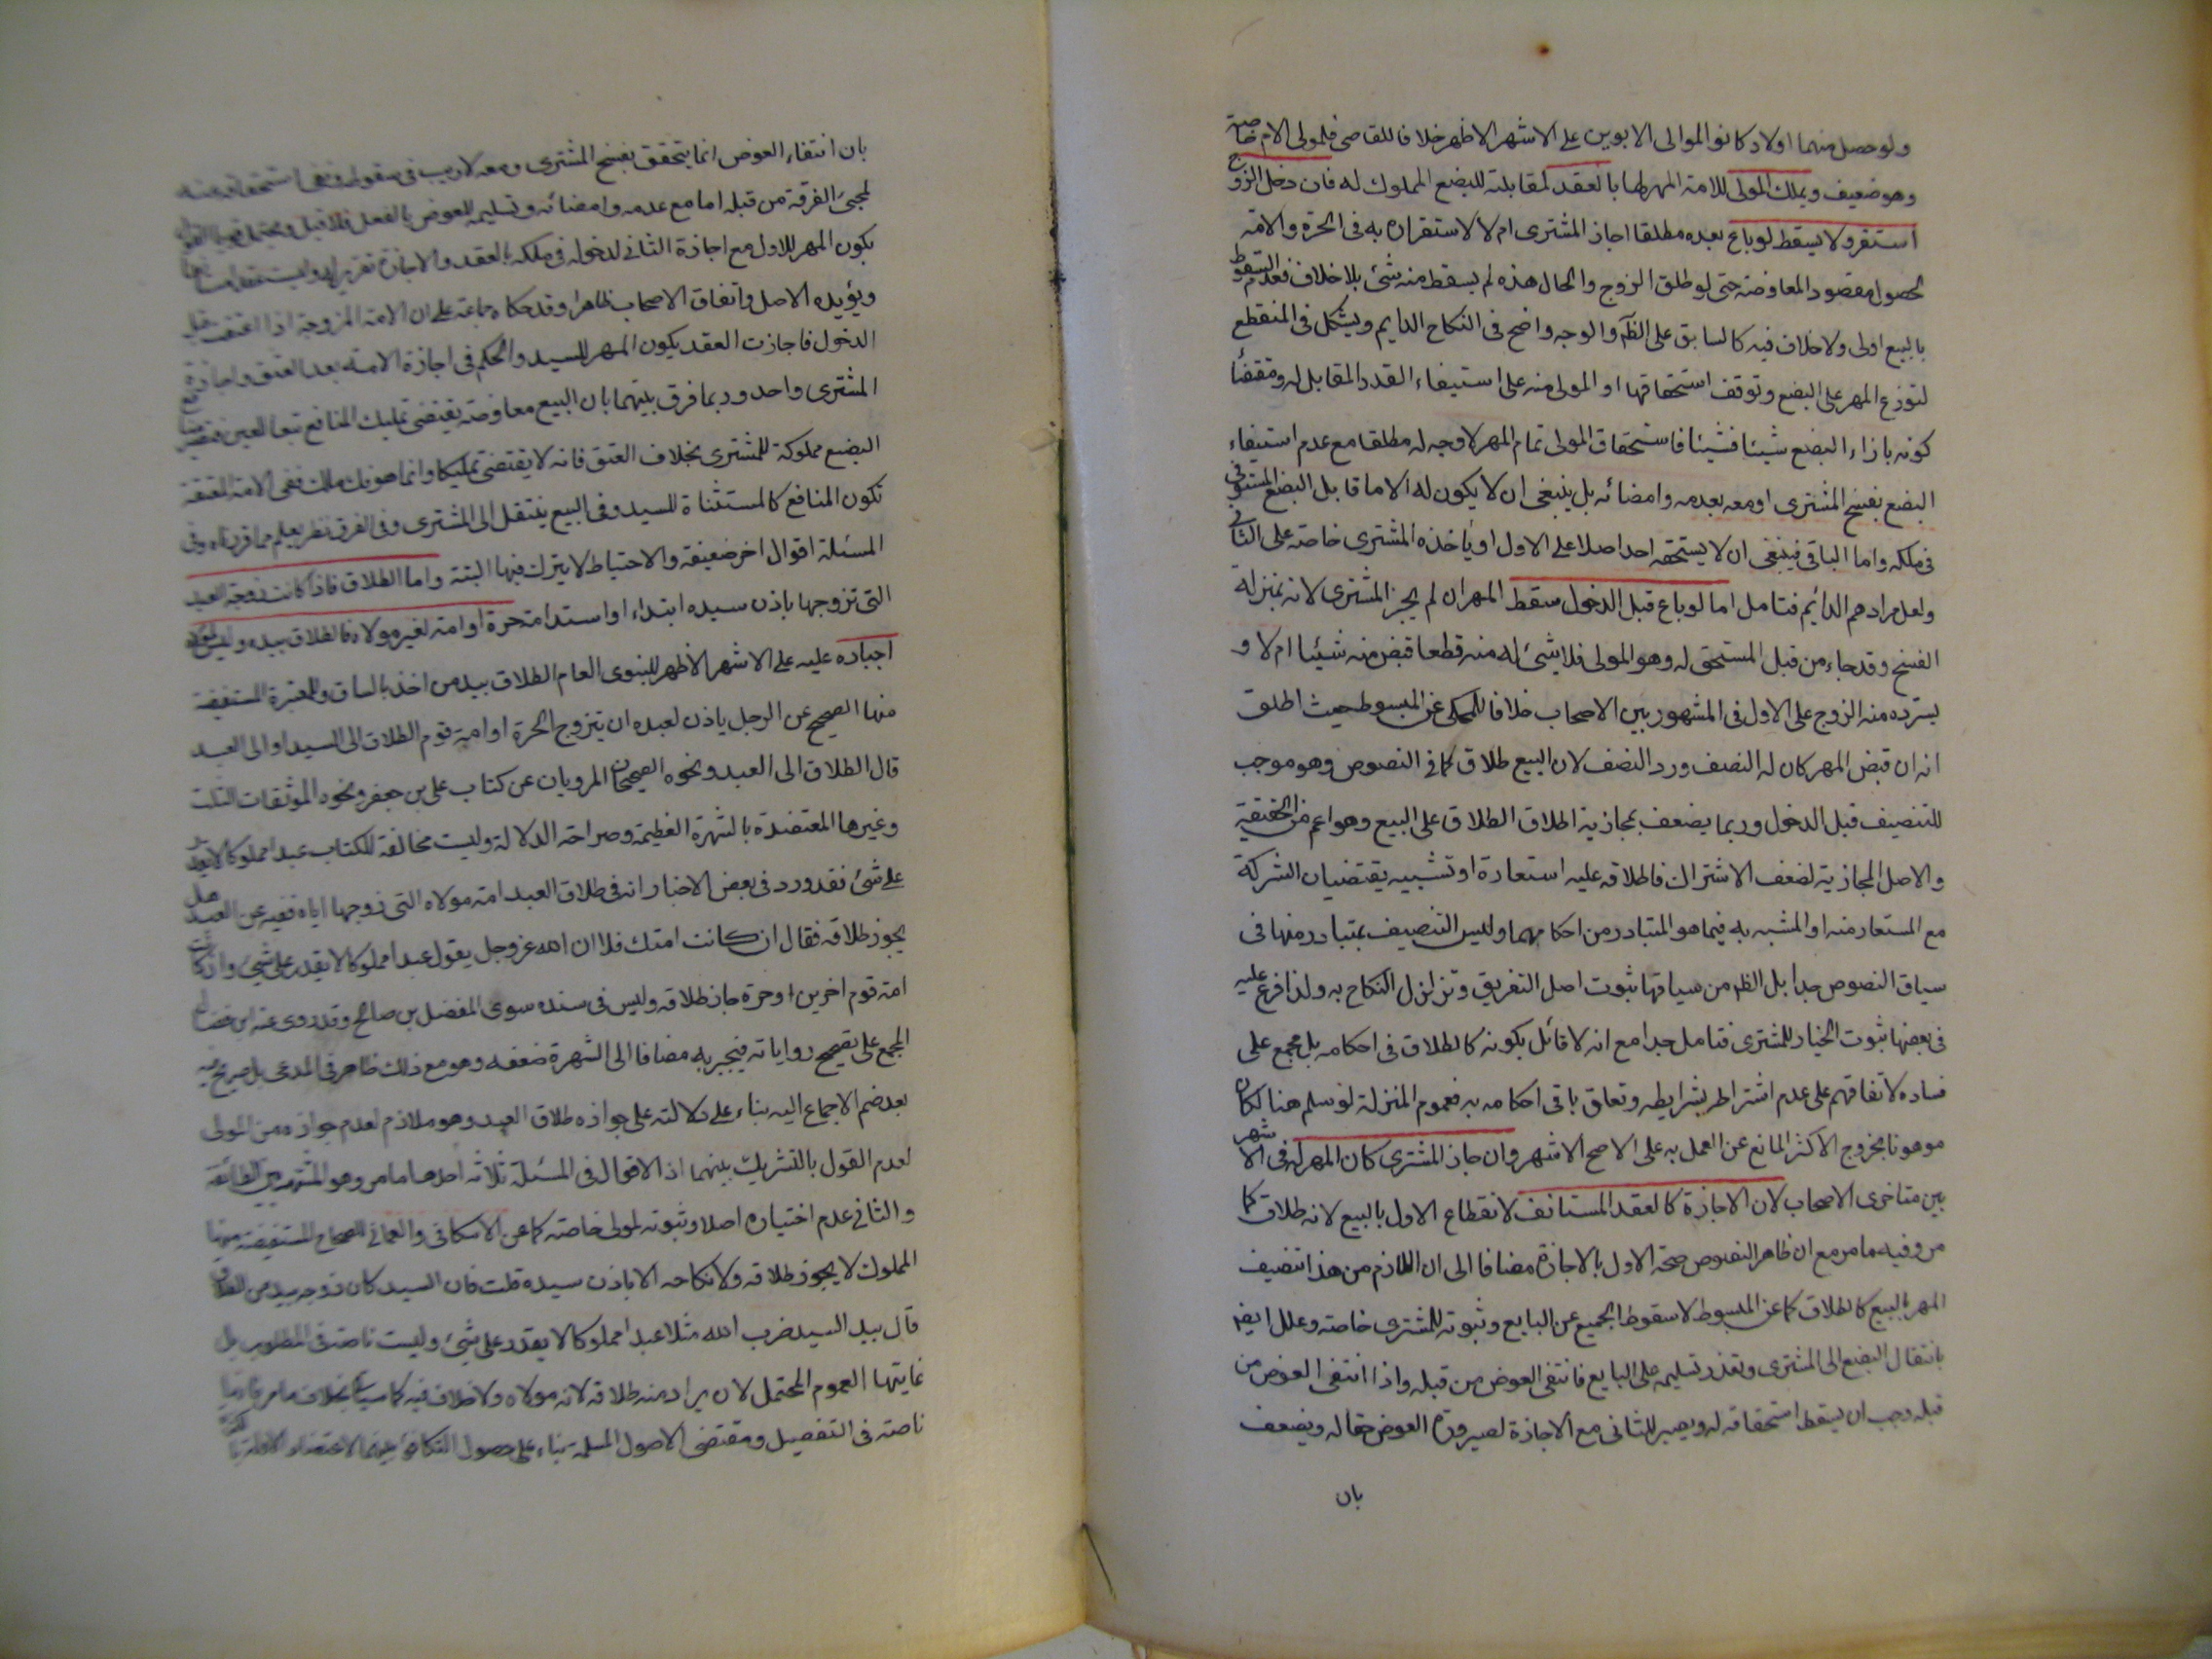 ولو حصل منهما اولاد كانوا لموالى الابوين على الاشهر الاظهر خلافا للقاضى فلمولى الام خاصة
وهو ضعيف ويملك المولى للامة المهر لها بالعقد لمقابلته للبضع المملوك له فان دخل الزوج
استقر ولا يسقط لو باع بعده مطلقا اجاز المشترى ام لا لاستقراره به فى الحرة والامة
لحصول مقصود المعاوضة حتى لو طلق الزوج والحال هذه لم يسقط منه شئ بلا خلاف فعدم السقوط
بالبيع اولى ولا خلاف فيه كالسابق على الظ والوجه واضح فى النكاح الدايم ويشكل فى المنقطع
لتوزع المهر على البضع وتوقف استحقاقها او المولى منه على استيفاء القدر المقابل له ومقتضاه
كونه بازاء البضع شيئا فشيئا فاستحقاق المولى تمام المهر لا وجه له مطلقا مع عدم استيفاء
البضع بفسخ المشترى او معه بعدمه وامضائه بل ينبغى ان لا يكون له الا ما قابل البضع المستوفى
فى ملكه واما الباقى فينبغى ان لا يستحقه احد اصلا على الاول او ياخذه المشترى خاصة على الثانى
ولعل مرادهم الدائم فتامل اما لو باع قبل الدخول سقط المهر ان لم يجز المشترى لانه بمنزلة
الفسخ وقد جاء من قبل المستحق له وهو المولى فلا شئ له منه قطعا قبض منه شيئا ام لا و
يسترده منه الزوج على الاول فى المشهور بين الاصحاب خلافا للمحكى عن المبسوط حيث اطلق
انه ان قبض المهر كان له النصف ورد النصف لان البيع طلاق كما فى النصوص وهو موجب
للتنصيف قبل الدخول وربما يضعف بمجازية اطلاق الطلاق على البيع وهو اعم من الحقيقية
والاصل المجازية لضعف الاشتراك فاطلاقه عليه استعارة او تشبيه يقتضيان الشركة
مع المستعار منه او المشبه به فيما هو المتبادر من احكامهما وليس التنصيف بمتبادر منها فى
سياق النصوص جدا بل الظ من سياقها ثبوت اصل التفريق وتزلزل النكاح به ولذا فرع عليه
فى بعضها ثبوت الخيار للمشترى فتامل جدا مع انه لا قائل بكونه كالطلاق فى احكامه بل مجمع على
فساده لاتفاقهم على عدم اشتراطه بشرايطه وتعلق باقى احكامه به فعموم المنزلة لو سلم هنا لكان
موهونا بخروج الاكثر المانع عن العمل به على الاصح الاشهر وان جاز المشترى كان المهر له فى الاشهر
بين متاخرى الاصحاب لان الاجازة كالعقد المستانف لانقطاع الاول بالبيع لانه طلاق كما
مر وفيه ما مر مع ان ظاهر النصوص صحة الاول بالاجازة مضافا الى ان اللازم من هذا تنصيف
المهر بالبيع كالطلاق كما عن المبسوط لا سقوط الجميع عن البايع وثبوته للمشترى خاصة وعلل ايض
بانتقال البضع الى المشترى وتعذر تسليمه على البايع فانتفى العوض من قبله واذا انتفى العوض من
قبله وجب ان يسقط استحقاقه له ويصير للثانى مع الاجازة لصيرورة العوض حقا له ويضعف
بان
بان انتفاء العوض انما يتحقق بفسخ المشترى ومعه لا ريب فى سقوطه ونفى استحقاقه منه
لمجئ الفرقة من قبله اما مع عدمه وامضائه وتسليمه للعوض بالفعل فلا قيل ويحتمل
يكون المهر للاول مع اجازة الثانى لدخوله فى ملكه بالعقد والاجازة تقرير له وليست عقدا
ويؤيده الاصل واتفاق الاصحاب ظاهرا وقد حكاه جماعة على ان الامة المزوجة اذا اعتقت قبل
الدخول فاجازت العقد يكون المهر للسيد والحكم فى اجازة الامة بعد العتق واجازة
المشترى واحد وربما فرق بينهما بان البيع معاوضة يقتضى تمليك المنافع تبعا للعين
البضع مملوكة للمشترى بخلاف العتق فانه لا يقتضى تمليكا وانما هو فك ملك ففى الامة المعتقة
تكون المنافع كالمستثناة للسيد وفى البيع ينتقل الى المشترى وفى الفرق نظر يعلم مما قررناه وفى
المسئلة اقوال اخر ضعيفة والاحتياط لا يترك فيها البتة واما الطلاق فاذا كانت زوجة العبد
التى تزوجها باذن سيده ابتداء او استدامة حرة او امة لغير مولاه فالطلاق بيده وليس لمولاه
اجباره عليه على الاشهر الاظهر للنبوى العام الطلاق بيد من اخذ بالساق وللمعتبرة المستفيضة
منها الصحيح عن الرجل ياذن لعبده ان يتزوج الحرة او امة قوم الطلاق الى السيد او الى العبد
قال الطلاق الى العبد ونحوه الصحيحان المرويان عن كتاب على بن جعفر ونحوه الموثقات الثلث
وغيرها المعتضدة بالشهرة العظيمة وصراحة الدلالة وليست مخالفة للكتاب عبدا مملوكا لا يقدر
على شئ فقد ورد فى بعض الاخبار انه فى طلاق العبد امة مولاه التى زوجها اياه ففيه عن العبد هل
يجوز طلاقه فقال ان كانت امتك فلا ان الله عز وجل يقول عبدا مملوكا لا يقدر على شئ وان كانت
امة قوم اخرين او حرة جاز طلاقه وليس فى سنده سوى المفضل بن صالح وقد روى عنه ابن فضال
المجمع على تصحيح رواياته فينجبر به مضافا الى الشهرة ضعفه وهو مع ذلك ظاهر فى المدعى بل صريح فيه
بعد ضم الاجماع اليه بناء على دلالته على جوازه طلاق العبد وهو ملازم لعدم جوازه من المولى
لعدم القول بالتشريك بينهما اذ الاقوال فى المسئلة ثلاثة احدها ما مر وهو المشهور بين الطائفة
والثانى عدم اختياره اصلا وثبوته لمولى خاصة كما عن الاسكافى والعمانى للصحاح المستفيضة منها
المملوك لا يجوز طلاقه ولا نكاحه الا باذن سيده قلت فان السيد كان زوجه بيد من الطلاق
قال بيد السيد ضرب الله مثلا عبدا مملوكا لا يقدر على شئ وليست ناصة فى المطلوب بل
غايتها العموم المحتمل لان يراد منه طلاقه لامة مولاه ولا خلاف فيه كما سياتى بخلاف ما مر فانها
ناصة فى التفصيل ومقتضى الاصول المسلمة بناء على حصول التكافؤ بينهما